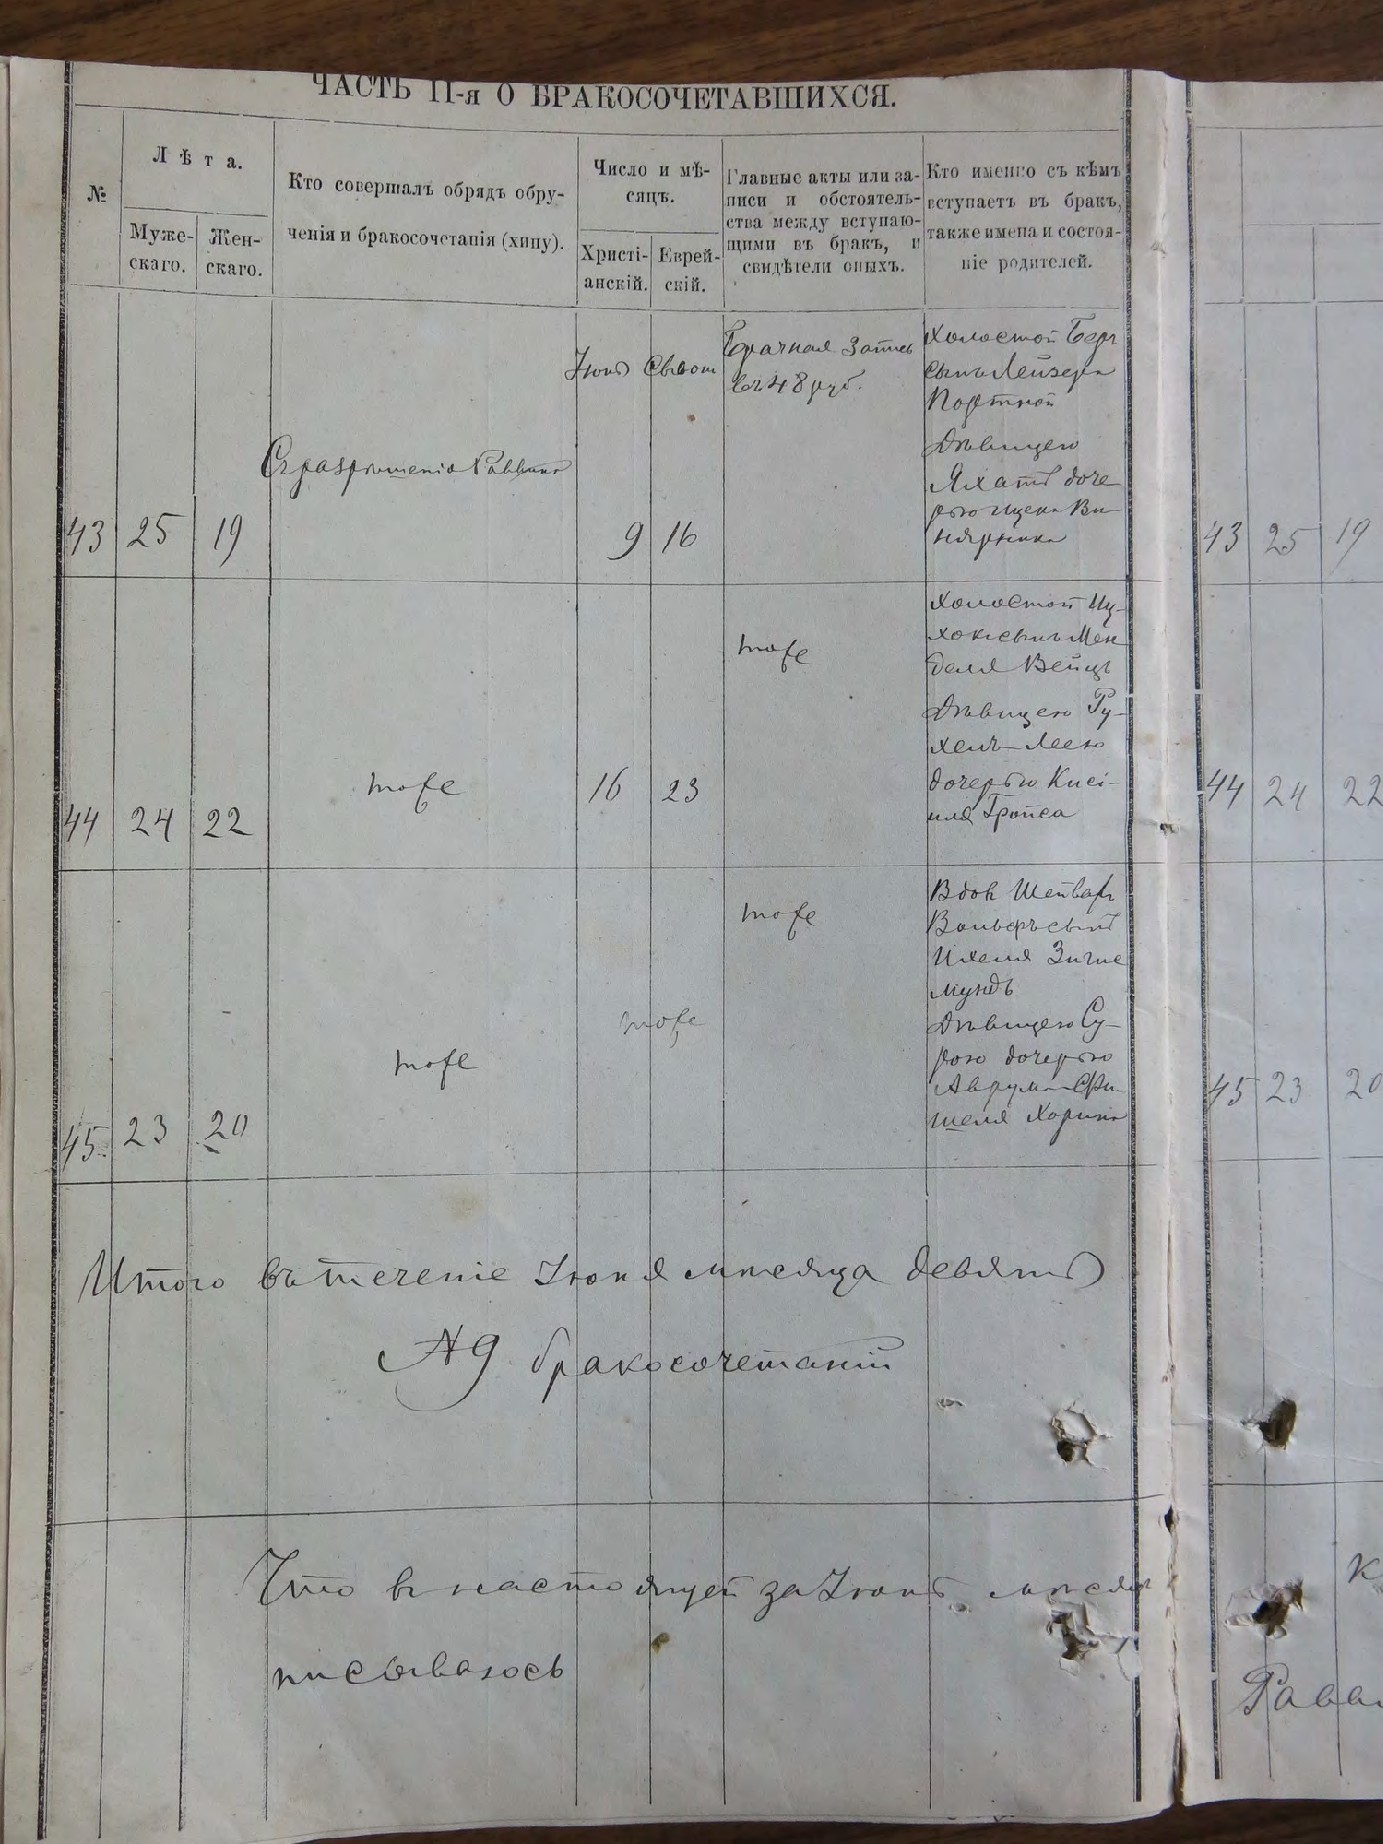 ЧАСТЬ II-я О БРАКОСОЧЕТАВШИХСЯ.
№
Лѣта.
Муже-
скаго.
Жен-
скаго.
Кто совершалъ обрядъ обру-
ченія и бракосочетанія (хипу).
Число и мѣ-
сяцъ.
Христі-
анскій.
Еврей-
скій.
Главные акты или за-
писи и обстоятель-
ства между вступаю-
щими въ бракъ, и
свидѣтели оныхъ.
Кто именно съ кѣмъ
вступаетъ въ бракъ,
также имена и состоя-
ніе родителей.
43 25 19
Съ разрѣшенія Раввина
Іюнь
9
16
Брачная запись
въ 48 руб.
Холостой Беръ
сынъ Лейзера
Портной
Дѣвицею
доче
рью Ицека Ви-
нярника
43 25 19
44 24 22
тоже
16 23
тоже
Холостой Иц-
хокъ сынъ Мен
деля Вейцъ
Дѣвицею Ру-
хель Леею
дочерью Кисі-
ля
44 24 22
45 23 20
тоже
тоже
тоже
Вдов
Вольфъ сынъ
Ихеля Зигис
мундъ
Дѣвицею Су-
рою дочерью
Аврум Фи
шеля
45 23 20
Итого въ теченіе Іюня мѣсяца девять
№ 9 бракосочетаній
Что в настоящей за Іюнь мѣсяц
писывалось
К
Равви